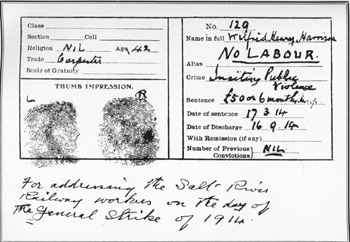 Class
Section Cell
Religion NIL Age 42
Trade Carpenter
Scale of Gratuity
THUMB IMPRESSION.
L R
No. 129
Name in full Wilfrid Henry Harrison
NO LABOUR.
Alias
Crime Inciting Public
Violence
Sentence £50 or 6 months
Date of sentence 17 3 14
Date of Discharge 16 9 14
With Remission (if any)
Number of Previous Convictions } NIL
For addressing the Salt River
Railway workers on the day of
the General Strike of 1914.